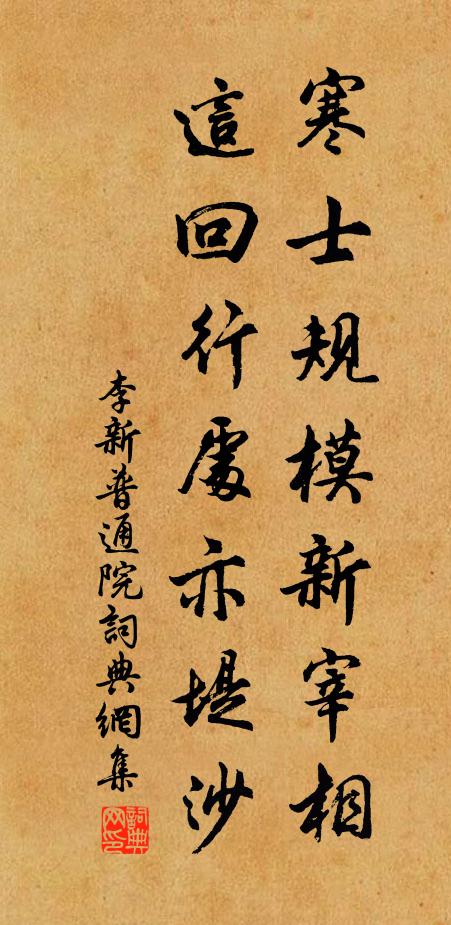 寒士規模新宰相
這回行處亦堤沙
李新普通院詞典網集
詞典网印